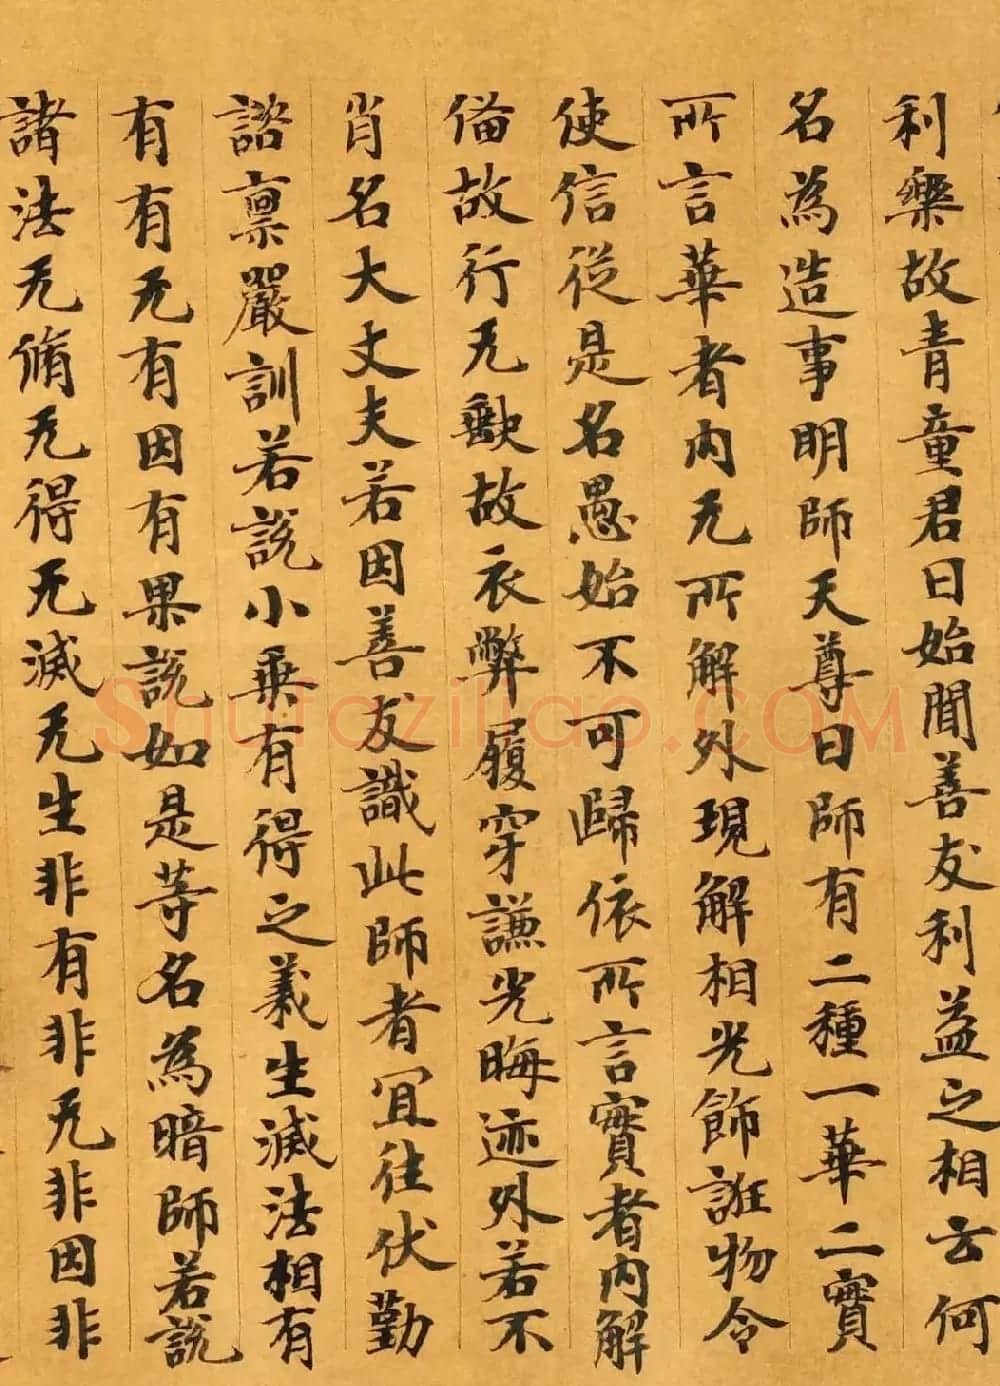 利樂故青童君曰始聞善友利益之相云何
名為造事明師天尊曰師有二種一華二實
所言華者內无所解外現解相光飾誑物令
使信従是名愚始不可歸依所言實者內解
俻故行无缺故衣弊履穿謙光晦迹外若不
肖名大丈夫若因善友識此師者冝往伏勤
諮稟嚴訓若說小乗有得之義生滅法相有
有有无有因有果說如是等名為暗師若說
諸法无脩无得无滅无生非有非无非因非
Shufaziliao.COM